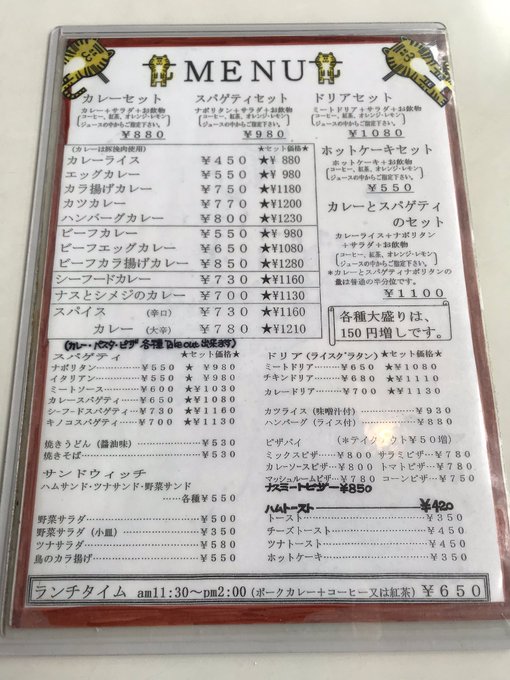 MENU
カレーセット
カレー+サラダ+お飲物
(コーヒー、紅茶、オレンジ・レモン
ジュースの中からご指定下さい。)
¥880
スパゲティセット
ナポリタン+サラダ+お飲物
(コーヒー、紅茶、オレンジ・レモン
ジュースの中からご指定下さい。)
¥980
ドリアセット
ミートドリア+サラダ+お飲物
(コーヒー、紅茶、オレンジ・レモン
ジュースの中からご指定下さい。)
¥1080
(カレーは豚挽肉使用) ★セット価格★
カレーライス ¥450 ★¥880
エッグカレー ¥550 ★¥980
カラ揚げカレー ¥750 ★¥1180
カツカレー ¥770 ★¥1200
ハンバーグカレー ¥800 ★¥1230
ビーフカレー ¥550 ★¥980
ビーフエッグカレー ¥650 ★¥1080
ビーフカラ揚げカレー ¥850 ★¥1280
シーフードカレー ¥730 ★¥1160
ナスとシメジのカレー ¥700 ★¥1130
スパイス (辛口) ¥730 ★¥1160
カレー (大辛) ¥780 ★¥1210
ホットケーキセット
ホットケーキ+お飲物
(コーヒー、紅茶、オレンジ・レモン
ジュースの中からご指定下さい。)
¥550
カレーとスパゲティ
のセット
カレーライス+ナポリタン
+サラダ+お飲物
(コーヒー、紅茶、オレンジ・レモン
ジュースの中からご指定下さい。)
*カレーとスパゲティナポリタンの
量は普通の半分位です。
¥1100
各種大盛りは、
150円増しです。
(カレー・パスタ・ピザ 各種 Take out 出来ます)
スパゲティ ★セット価格★
ナポリタン ¥550 ★ ¥980
イタリアン ¥550 ★ ¥980
ミートソース ¥600 ★ ¥1030
カレースパゲティ ¥650 ★ ¥1080
シーフードスパゲティ ¥730 ★ ¥1160
キノコスパゲティ ¥700 ★ ¥1130
焼きうどん (醤油味) ¥530
焼きそば ¥530
サンドウィッチ
ハムサンド・ツナサンド・野菜サンド
各種¥550
野菜サラダ ¥500
野菜サラダ (小皿) ¥350
ツナサラダ ¥580
鳥のカラ揚げ ¥550
ドリア (ライスグラタン) ★セット価格★
ミートドリア ¥650 ★ ¥1080
チキンドリア ¥680 ★ ¥1110
カレードリア ¥700 ★ ¥1130
カツライス (味噌汁付) ¥930
ハンバーグ (ライス付) ¥880
ピザパイ (*テイクアウト¥50増)
ミックスピザ ¥800 サラミピザ ¥780
カレーソースピザ ¥800 トマトピザ ¥780
マッシュルームピザ ¥780 コーンピザ ¥750
ナスミートピザー¥850
ハムトースト ¥420
トースト ¥350
チーズトースト ¥450
ツナトースト ¥450
ホットケーキ ¥350
ランチタイム am11:30〜pm2:00 (ポークカレー+コーヒー又は紅茶) ¥650